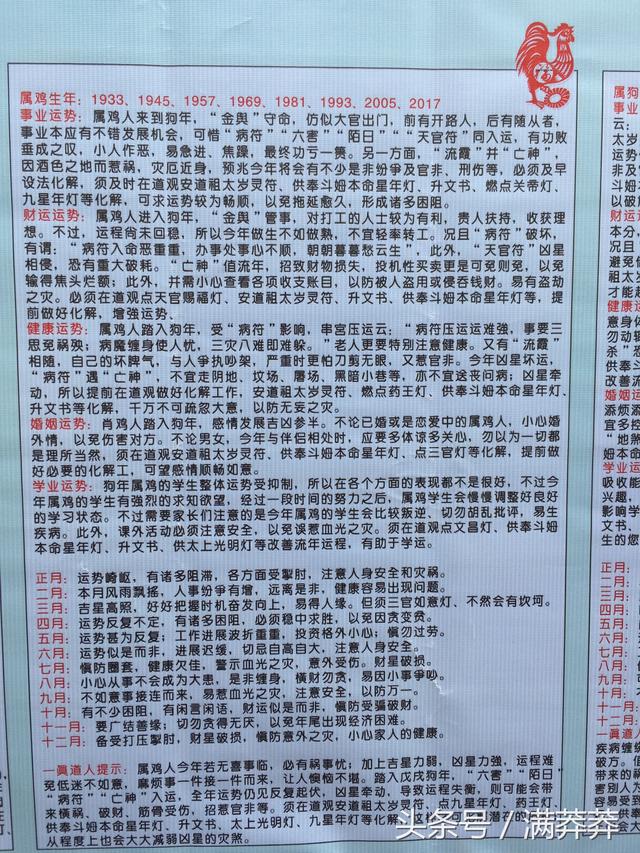 属鸡生年：1933、1945、1957、1969、1981、1993、2005、2017
事业运势：属鸡人来到狗年，“金舆”守命，仿似大官出门，前有开路人，后有随从者，
事业本应有不错发展机会，可惜“病符”“六害”“陌日”“天官符”同入运，有功败
垂成之叹，小人作恶，易急进、焦躁，最终功亏一篑。另一方面，“流霞”并“亡神”，
因酒色之地而惹祸，灾厄近身，预兆今年将会有不少是非纷争及官非、刑伤等，必须及早
设法化解，须及时在道观安道祖太岁灵符、供奉斗姆本命星年灯、升文书、燃点关帝灯、
九星年灯等化解，可求运势较为畅顺，以免拖延愈久，形成诸多困阻。
财运运势：属鸡人进入狗年，“金舆”管事，对打工的人士较为有利，贵人扶持，收获理
想。不过，运程尚未回稳，所以今年做生不如做熟，不宜轻率转工。况且“病符”破坏，
有谓：“病符入命恶重重，办事处事心不顺，朝朝暮暮愁云生”，此外，“天官符”凶星
相侵，恐有重大破耗。“亡神”值流年，招致财物损失，投机性买卖更是可免则免，以免
输得焦头烂额；此外，并需小心查看各项收支账目，以防被人盗用或侵吞钱财。易有盗劫
之灾。必须在道观点天官赐福灯、安道祖太岁灵符、升文书、供奉斗姆本命星年灯等，提
前做好化解，增强运势。
健康运势：属鸡人踏入狗年，受“病符”影响，串宫压运云；“病符压运运难强，事要三
思免祸殃；病魔缠身使人忧，三灾八难即难躲。”老人更要特别注意健康。又有“流霞”
相随，自己的坏脾气，与人争执吵架，严重时更怕刀剪无眼，又惹官非。今年凶星坏运，
“病符”遇“亡神”，不宜走阴地、坟场、屠场、黑暗小巷等，亦不宜送丧问病；凶星牵
动，所以提前在道观做好化解工作，安道祖太岁灵符、燃点药王灯、供奉斗姆本命星年灯、
升文书等化解，千万不可疏忽大意，以防无妄之灾。
婚姻运势：肖鸡人踏入本年，感情发展吉凶参半。不论已婚或是恋爱中的属鸡人，小心婚
外情，以免伤害对方。不论男女，今年与伴侣相处时，应要多体谅多关心，勿以为一切都
是理所当然，须在道观安道祖太岁灵符、供奉斗姆本命星年灯、点三官灯等化解，提前做
好必要的化解工，可望感情顺畅如意。
学业运势：狗年属鸡的学生整体运势受抑制，所以在各个方面的表现都不是很好，不过今
年属鸡的学生有强烈的求知欲望，经过一段时间的努力之后，属鸡学生会慢慢调整好良好
的学习状态。不过需要家长们注意的是今年属鸡的学生会比较叛逆、切勿胡乱批评，易生
疾病。此外，课外活动必须注意安全，以免误惹血光之灾。须在道观点文昌灯、供奉斗姆
本命星年灯、升文书、供太上光明灯等改善流年运程，有助于学运。
正月：运势崎岖，有诸多阻滞，各方面受掣肘，注意人身安全和灾祸。
二月：本月风雨飘摇，人事纷争有增，远离是非，健康容易出现问题。
三月：吉星高照，好好把握时机奋发向上，易得人缘。但须三官如意灯、不然会有坎坷。
四月：运势反复不定，有诸多困阻，必须稳中求胜，以免因贪变贫。
五月：运势甚为反复；工作进展波折重重，投资格外小心；慎勿过劳。
六月：运势似是而非，进展迟缓，切忌自高自大，注意人身安全。
七月：慎防圈套，健康欠佳，警示血光之灾，意外受伤。财星破损。
八月：小心从事不会成为大患，是非缠身，横财勿贪，易因小事争吵。
九月：不如意事接连而来，易惹血光之灾，注意安全，以防万一。
十月：有不少困阻，有闲言闲语，财运似是而非，慎防受骗破财。
十一月：要广结善缘；切勿贪得无厌，以免年尾出现经济困难。
十二月：备受打压掣肘，财星破损，慎防意外之灾，小心家人的健康。
一真道人提示：属鸡人今年若无喜事临，必有祸事忧；加上吉星力弱，凶星力强，运程难
免低迷不如意，麻烦事一件接一件而来，让人懊恼不堪。踏入戊戌狗年，“六害”“陌日”
“病符”“亡神”入运，全年运势仍见反复起伏，凶星牵动，导致运程失衡，则可能会带
来横祸、破财，筋骨受伤，招惹官非等。须在道观安道祖太岁灵符、点九星年灯、药王灯、
供奉斗姆本命星年灯、升文书、太上光明灯、九星年灯等化解
从程度上也会大大减弱凶星的灾煞。
头条号／满莽莽